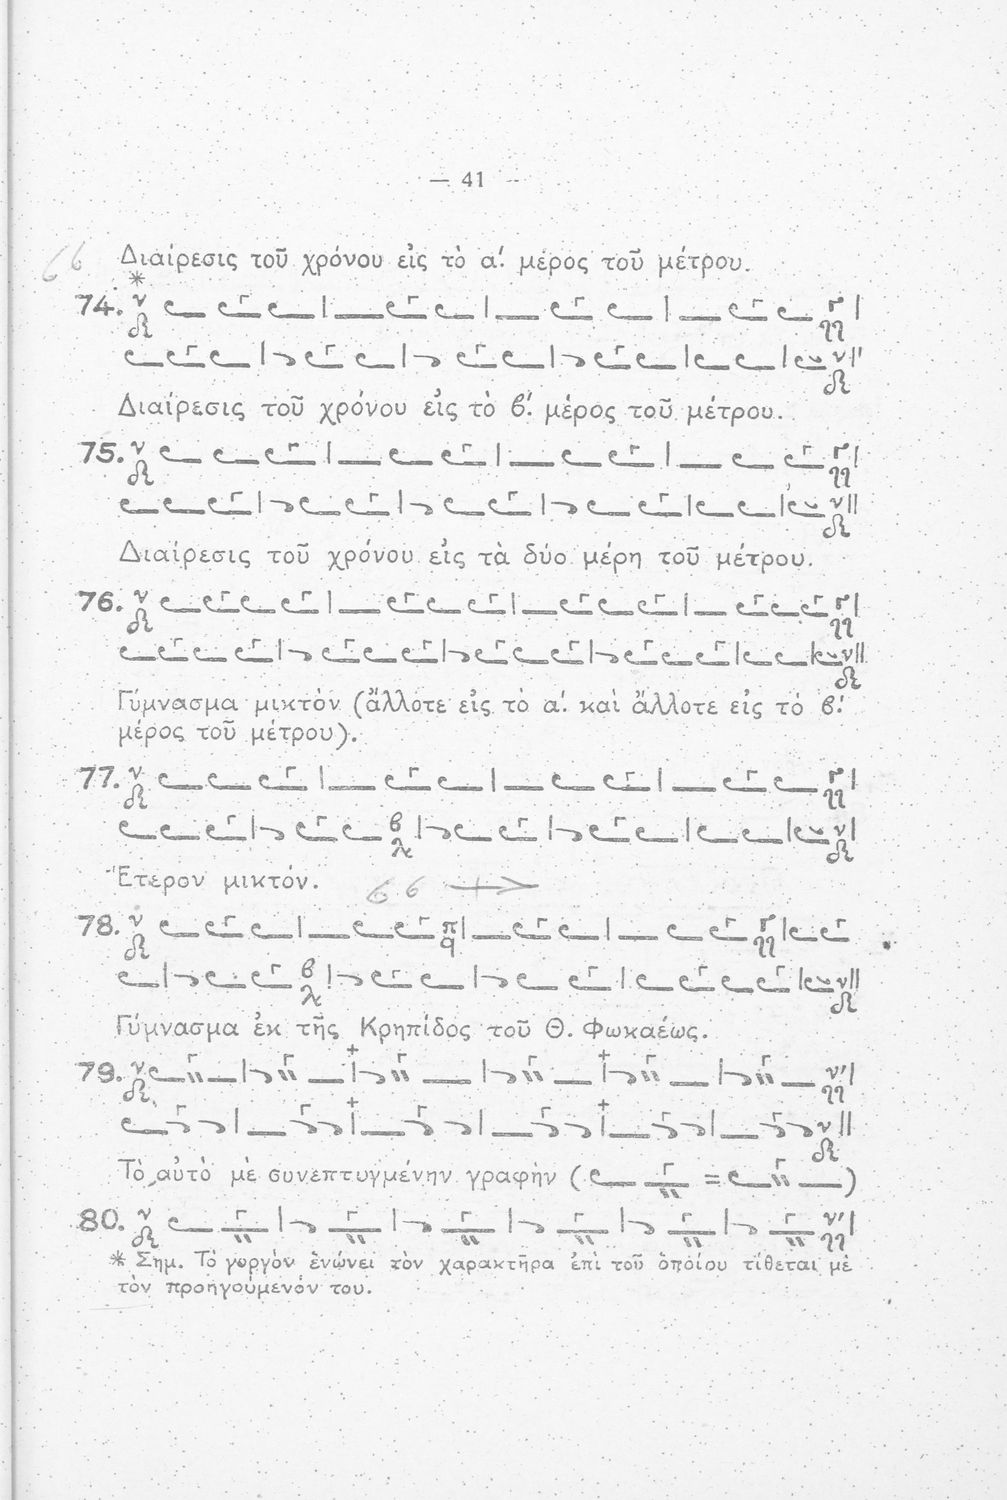 — 41 —
66
Διαίρεσις τοῦ χρόνου εἰς τὸ α΄. μέρος τοῦ μέτρου.
*
74.
Διαίρεσις τοῦ χρόνου εἰς τὸ β΄. μέρος τοῦ μέτρου.
75.
Διαίρεσις τοῦ χρόνου εἰς τὰ δύο μέρη τοῦ μέτρου.
76.
Γύμνασμα μικτὸν (ἄλλοτε εἰς τὸ α΄. καὶ ἄλλοτε εἰς τὸ β΄.
μέρος τοῦ μέτρου).
77.
Ἕτερον μικτόν. 66
78.
Γύμνασμα ἐκ τῆς Κρηπίδος τοῦ Θ. Φωκαέως.
79.
Τὸ αὐτὸ μὲ συνεπτυγμένην γραφὴν ( = )
80.
* Σημ. Τὸ γοργὸν ἑνώνει τὸν χαρακτῆρα ἐπὶ τοῦ ὁποίου τίθεται μὲ
τὸν προηγούμενόν του.